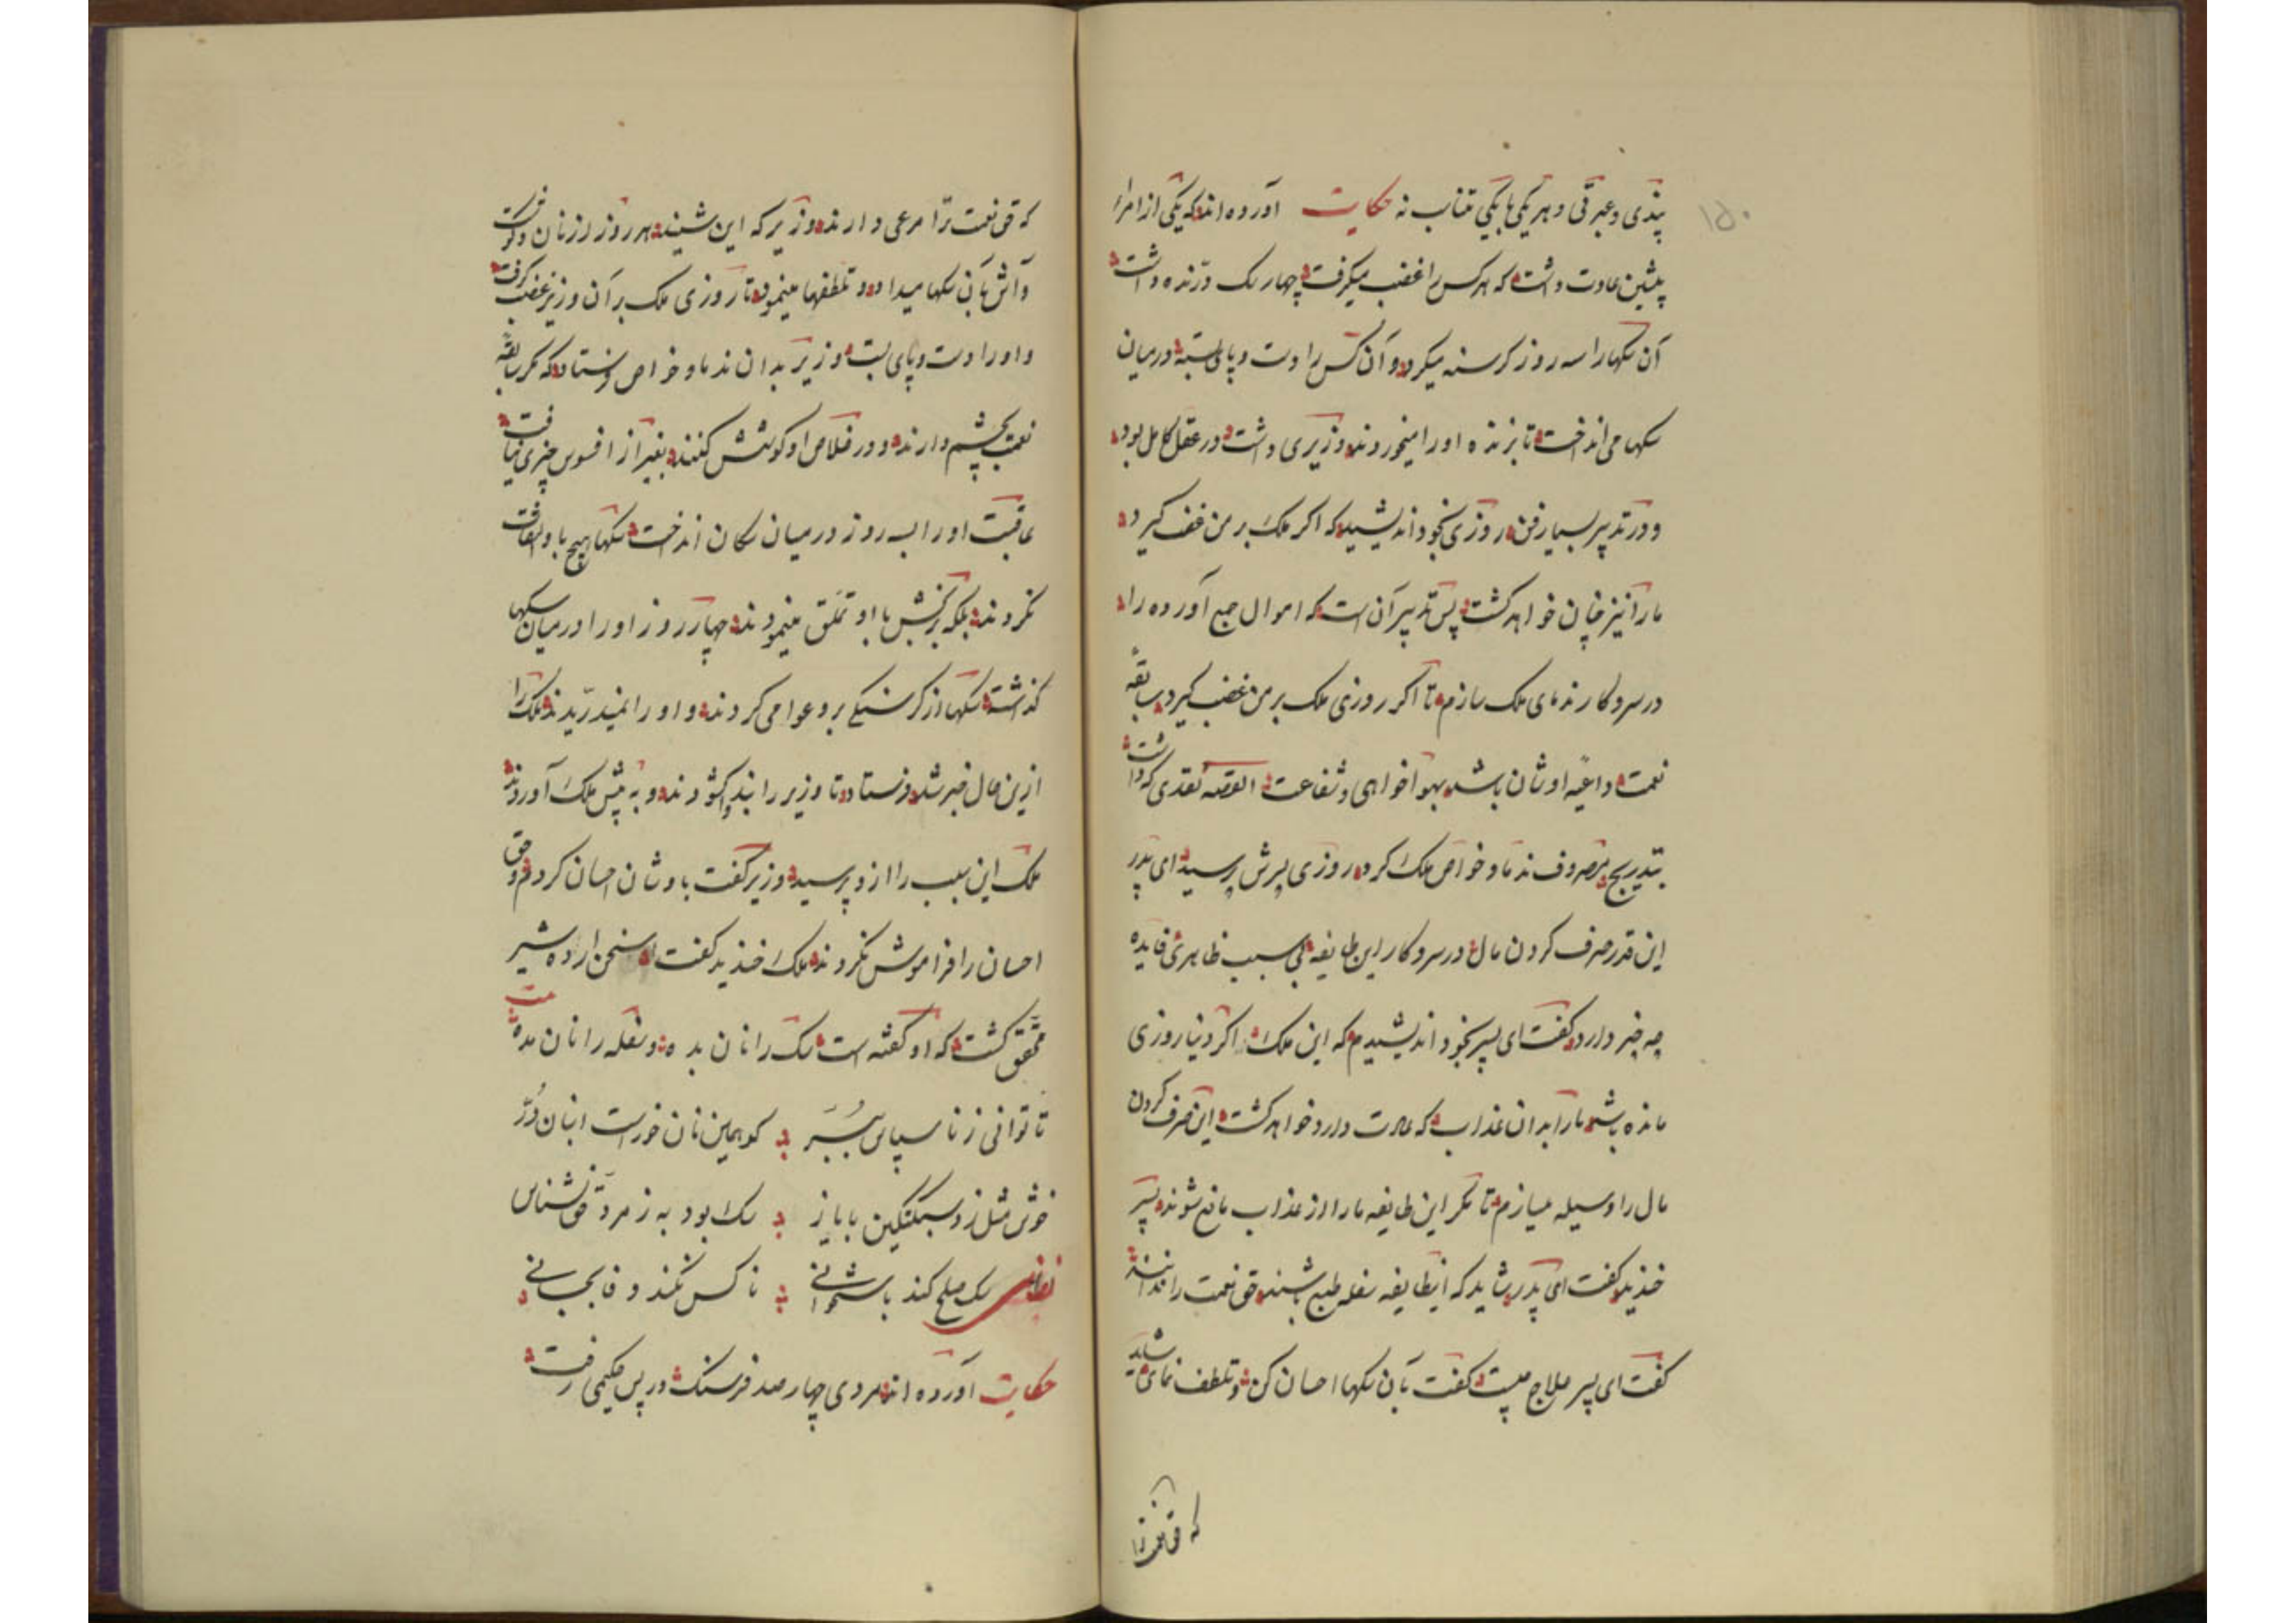 ۱۵۰
پندی و عبرتی و هر یکی با یکی متناسب نه حکایت آورده اند که یکی از امراء
پیشین عادت داشت که هر کس را غضب میکرفت چهار سک درنده داشت
آن سکها را سه روز کرسنه میکرد و آن کس را دست و پای بسته در میان
سکها می انداخت تا بزنده او را میخوردند وزیری داشت در عقل کامل بود
و در تدبیر بسیار فن روزی بخود اندیشید که اکر ملک بر من غضب کیرد
ما را نیز چنان خواهد کشت پس تدبیر آن است که اموال جمع آورده را
در سر و کار ندمای ملک سازم تا اکر روزی ملک بر من غضب کیرد سابقهٔ
نعمت داعیهٔ اوشان باشد بهواخواهی و شفاعت القصه نقدی که داشت
بتدریج مصروف ندما و خواص ملک کرد روزی پسرش پرسید ای پدر
این قدر صرف کردن مال در سر و کار این طایفه بی سبب ظاهری فایده
چه خبر دارد کفت ای پسر بخود اندیشیدم که این ملک اکر دنیا روزی
مانده باشم ما را بدان عذاب که عادت دارد خواهد کشت این صرف کردن
مال را وسیله میسازم تا مکر این طایفه ما را از عذاب مانع شوند پسر
خندید کفت ای پدر شاید که اینطایفه سفله طبع باشند حق نعمت را ندانند
کفت ای پسر علاج چیست کفت بآن سکها احسان کن و تلطف نمای شاید
که حق نعمت ترا
که حق نعمت ترا مرعی دارند وزیر که این شنید هر روز از نان و کوشت
و آش بآن سکها میداد و تلطفها مینمود تا روزی ملک بر آن وزیر غضب کرفت
و او را دست و پای بست وزیر بدان ندما و خواص فرستاد که مکر سابقهٔ
نعمت بچشم دارند و در خلاص او کوشش کنند بغیر از افسوس چیزی نیافت
عاقبت او را سه روز در میان سکان انداخت سکها هیچ باو التفات
نکردند بلکه برخیش با او تملق مینمودند چهار روز او را در میان سکها
کذاشت سکها از کرسنکی برو عوا می کردند و او را نمیدریدند ملک را
ازین حال خبر شد فرستاد تا وزیر را بند کشودند و به پیش ملک آوردند
ملک این سبب را ازو پرسید وزیر کفت باوشان احسان کردم و حق
احسان را فراموش نکردند ملک خندید کفت سخن اردشیر
محقق کشت که او کفته است سک را نان بده و سفله را نان مده بیت
تا توانی ز ناسپاس ببر کو همین نان خورست انبان در
خوش مثل زد سبکتکین با یاز سک بود به ز مرد حق نشناس
نظامی سک صلح کند باستخوانی ناکس نکند وفا بجانی
حکایت آورده اند مردی چهار صد فرسنک در پس حکیمی رفت